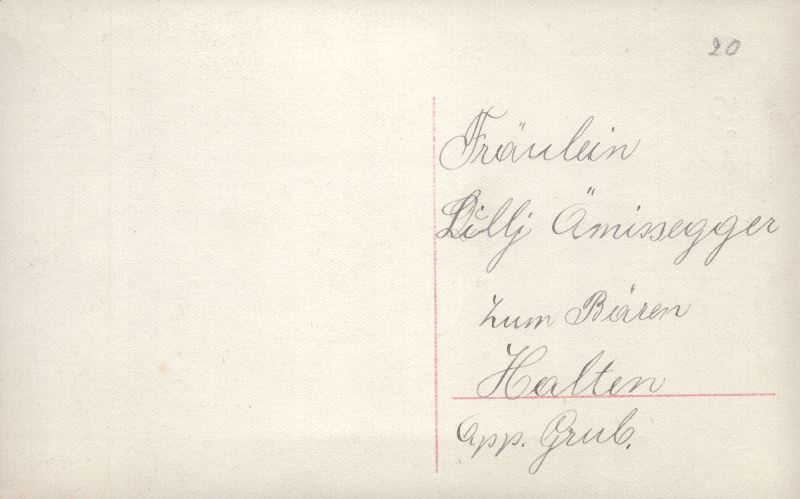 20
Fräulein
Lillj Ämissegger
zum Bären
Halten
App. Grub.